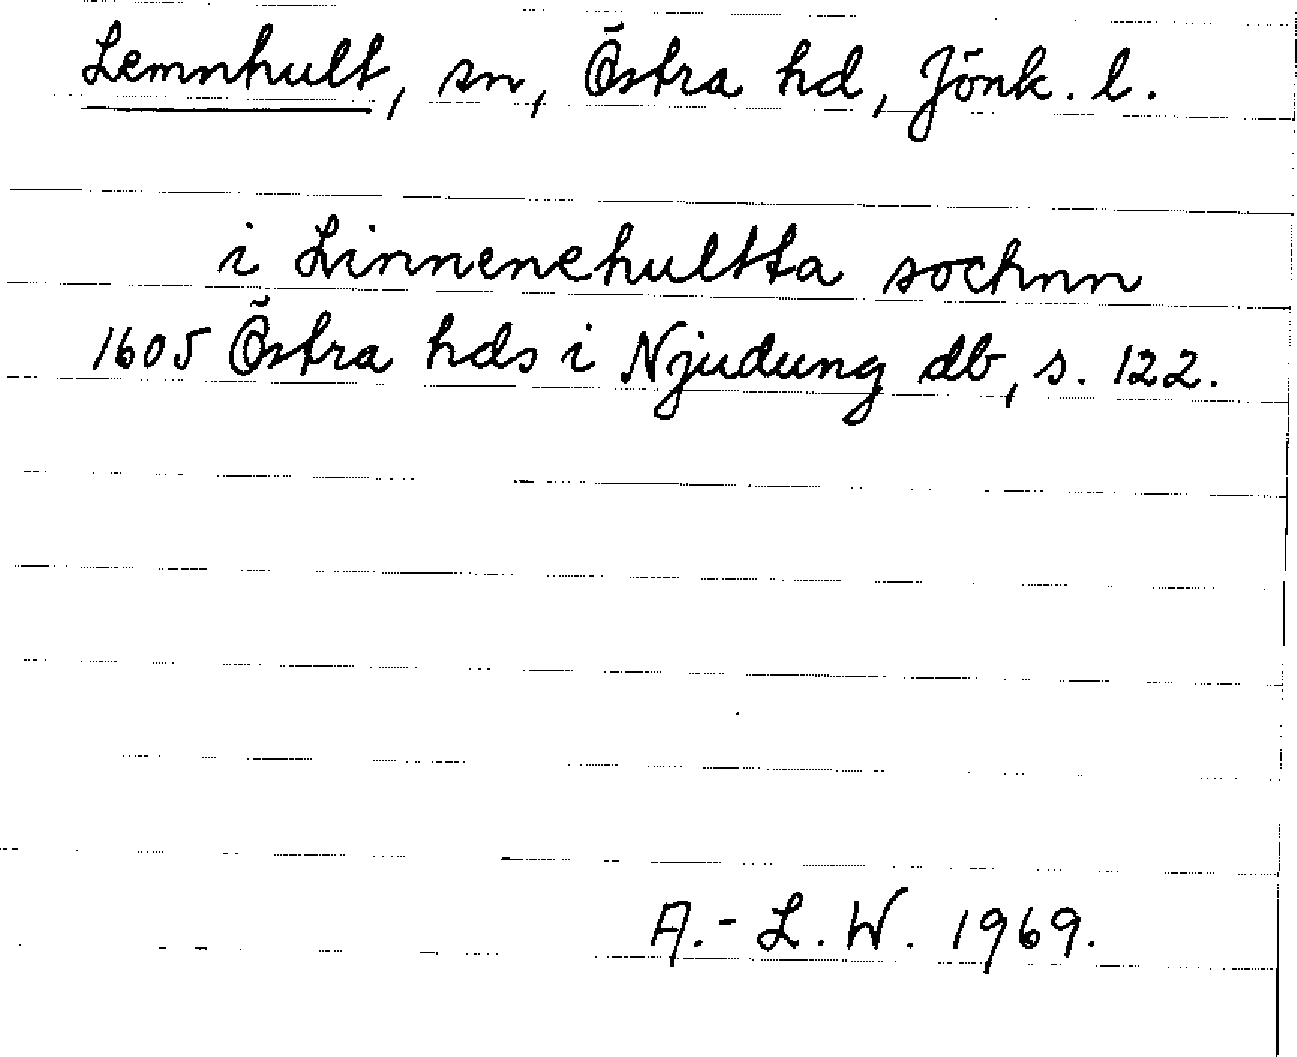 Lemnhult, sn, Östra hd, Jönk. l.
i Linnenehultta sochnn
1605 Östra hds i Njudung db, s. 122.
A.-L. W. 1969.